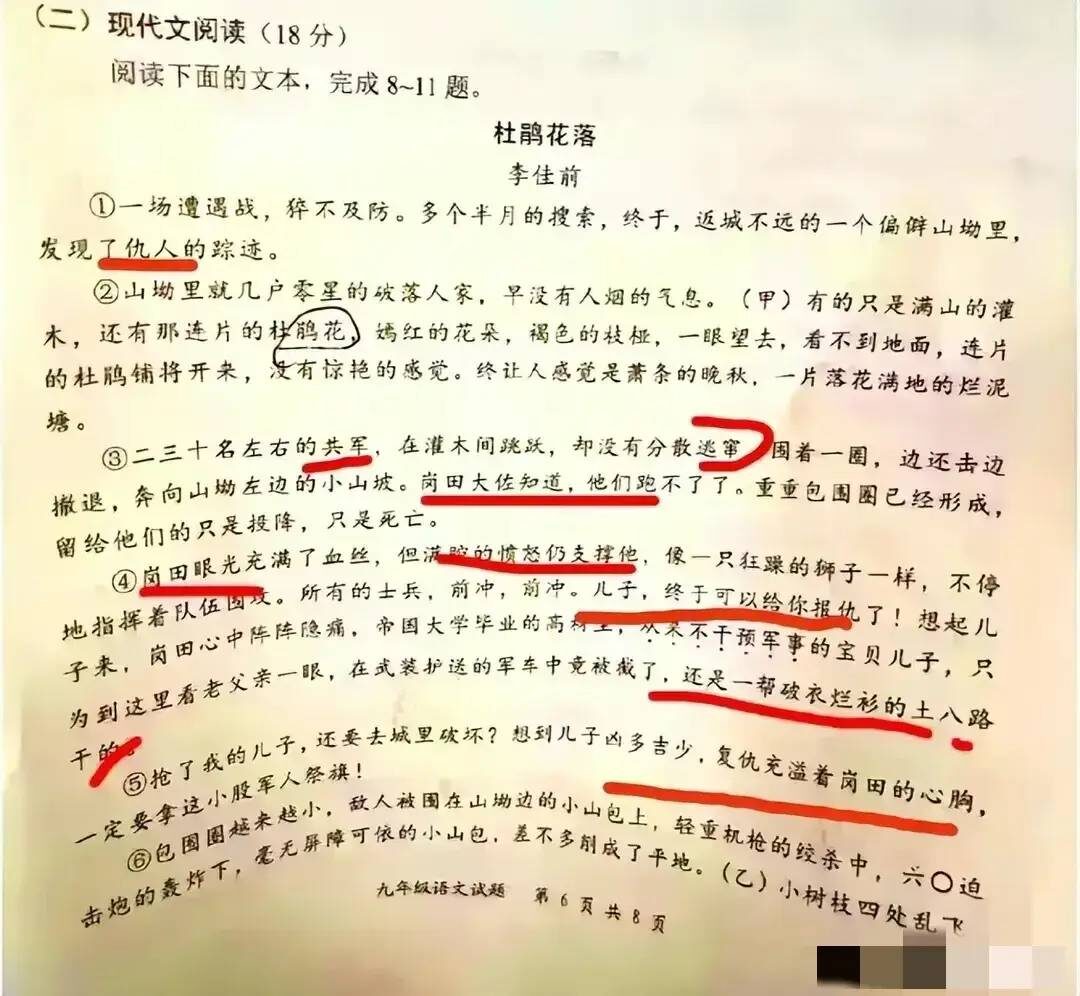 （二）现代文阅读（18分）
阅读下面的文本，完成8~11题。
杜鹃花落
李佳前
①一场遭遇战，猝不及防。多个半月的搜索，终于，返城不远的一个偏僻山坳里，
发现了仇人的踪迹。
②山坳里就几户零星的破落人家，早没有人烟的气息。（甲）有的只是满山的灌
木，还有那连片的杜鹃花，嫣红的花朵，褐色的枝桠，一眼望去，看不到地面，连片
的杜鹃铺将开来，没有惊艳的感觉。终让人感觉是萧条的晚秋，一片落花满地的烂泥
塘。
③二三十名左右的共军，在灌木间跳跃，却没有分散逃窜，围着一圈，边还击边
撤退，奔向山坳左边的小山坡。岗田大佐知道，他们跑不了了。重重包围圈已经形成，
留给他们的只是投降，只是死亡。
④岗田眼光充满了血丝，但满腔的愤怒仍支撑他，像一只狂躁的狮子一样，不停
地指挥着队伍围攻。所有的士兵，前冲，前冲。儿子，终于可以给你报仇了！想起儿
子来，岗田心中阵阵隐痛，帝国大学毕业的高材生，从来不干预军事的宝贝儿子，只
为到这里看老父亲一眼，在武装护送的军车中竟被截了，还是一帮破衣烂衫的土八路
干的。
⑤抢了我的儿子，还要去城里破坏？想到儿子凶多吉少，复仇充溢着岗田的心胸，
一定要拿这小股军人祭旗！
⑥包围圈越来越小，敌人被围在山坳边的小山包上，轻重机枪的绞杀中，六〇迫
击炮的轰炸下，毫无屏障可依的小山包，差不多削成了平地。（乙）小树枝四处乱飞
九年级语文试题 第6页共8页